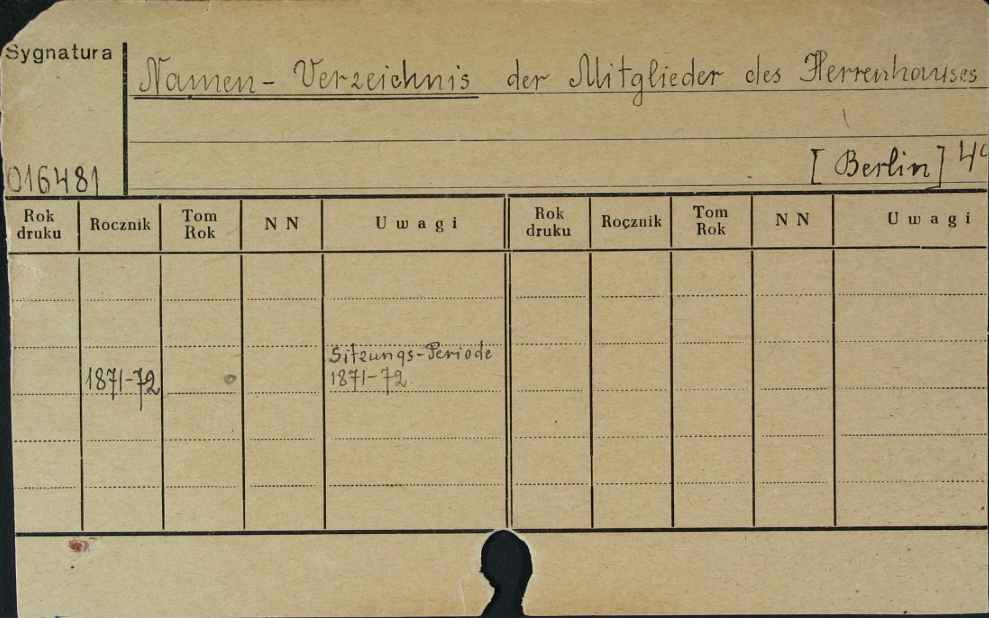 Sygnatura
Namen - Verzeichnis der Mitglieder des Herrenhauses
[Berlin] 4°
016481
Rok druku Rocznik Tom Rok NN Uwagi Rok druku Rocznik Tom Rok NN Uwagi
Sitzungs-Periode
1871-72 1871-72